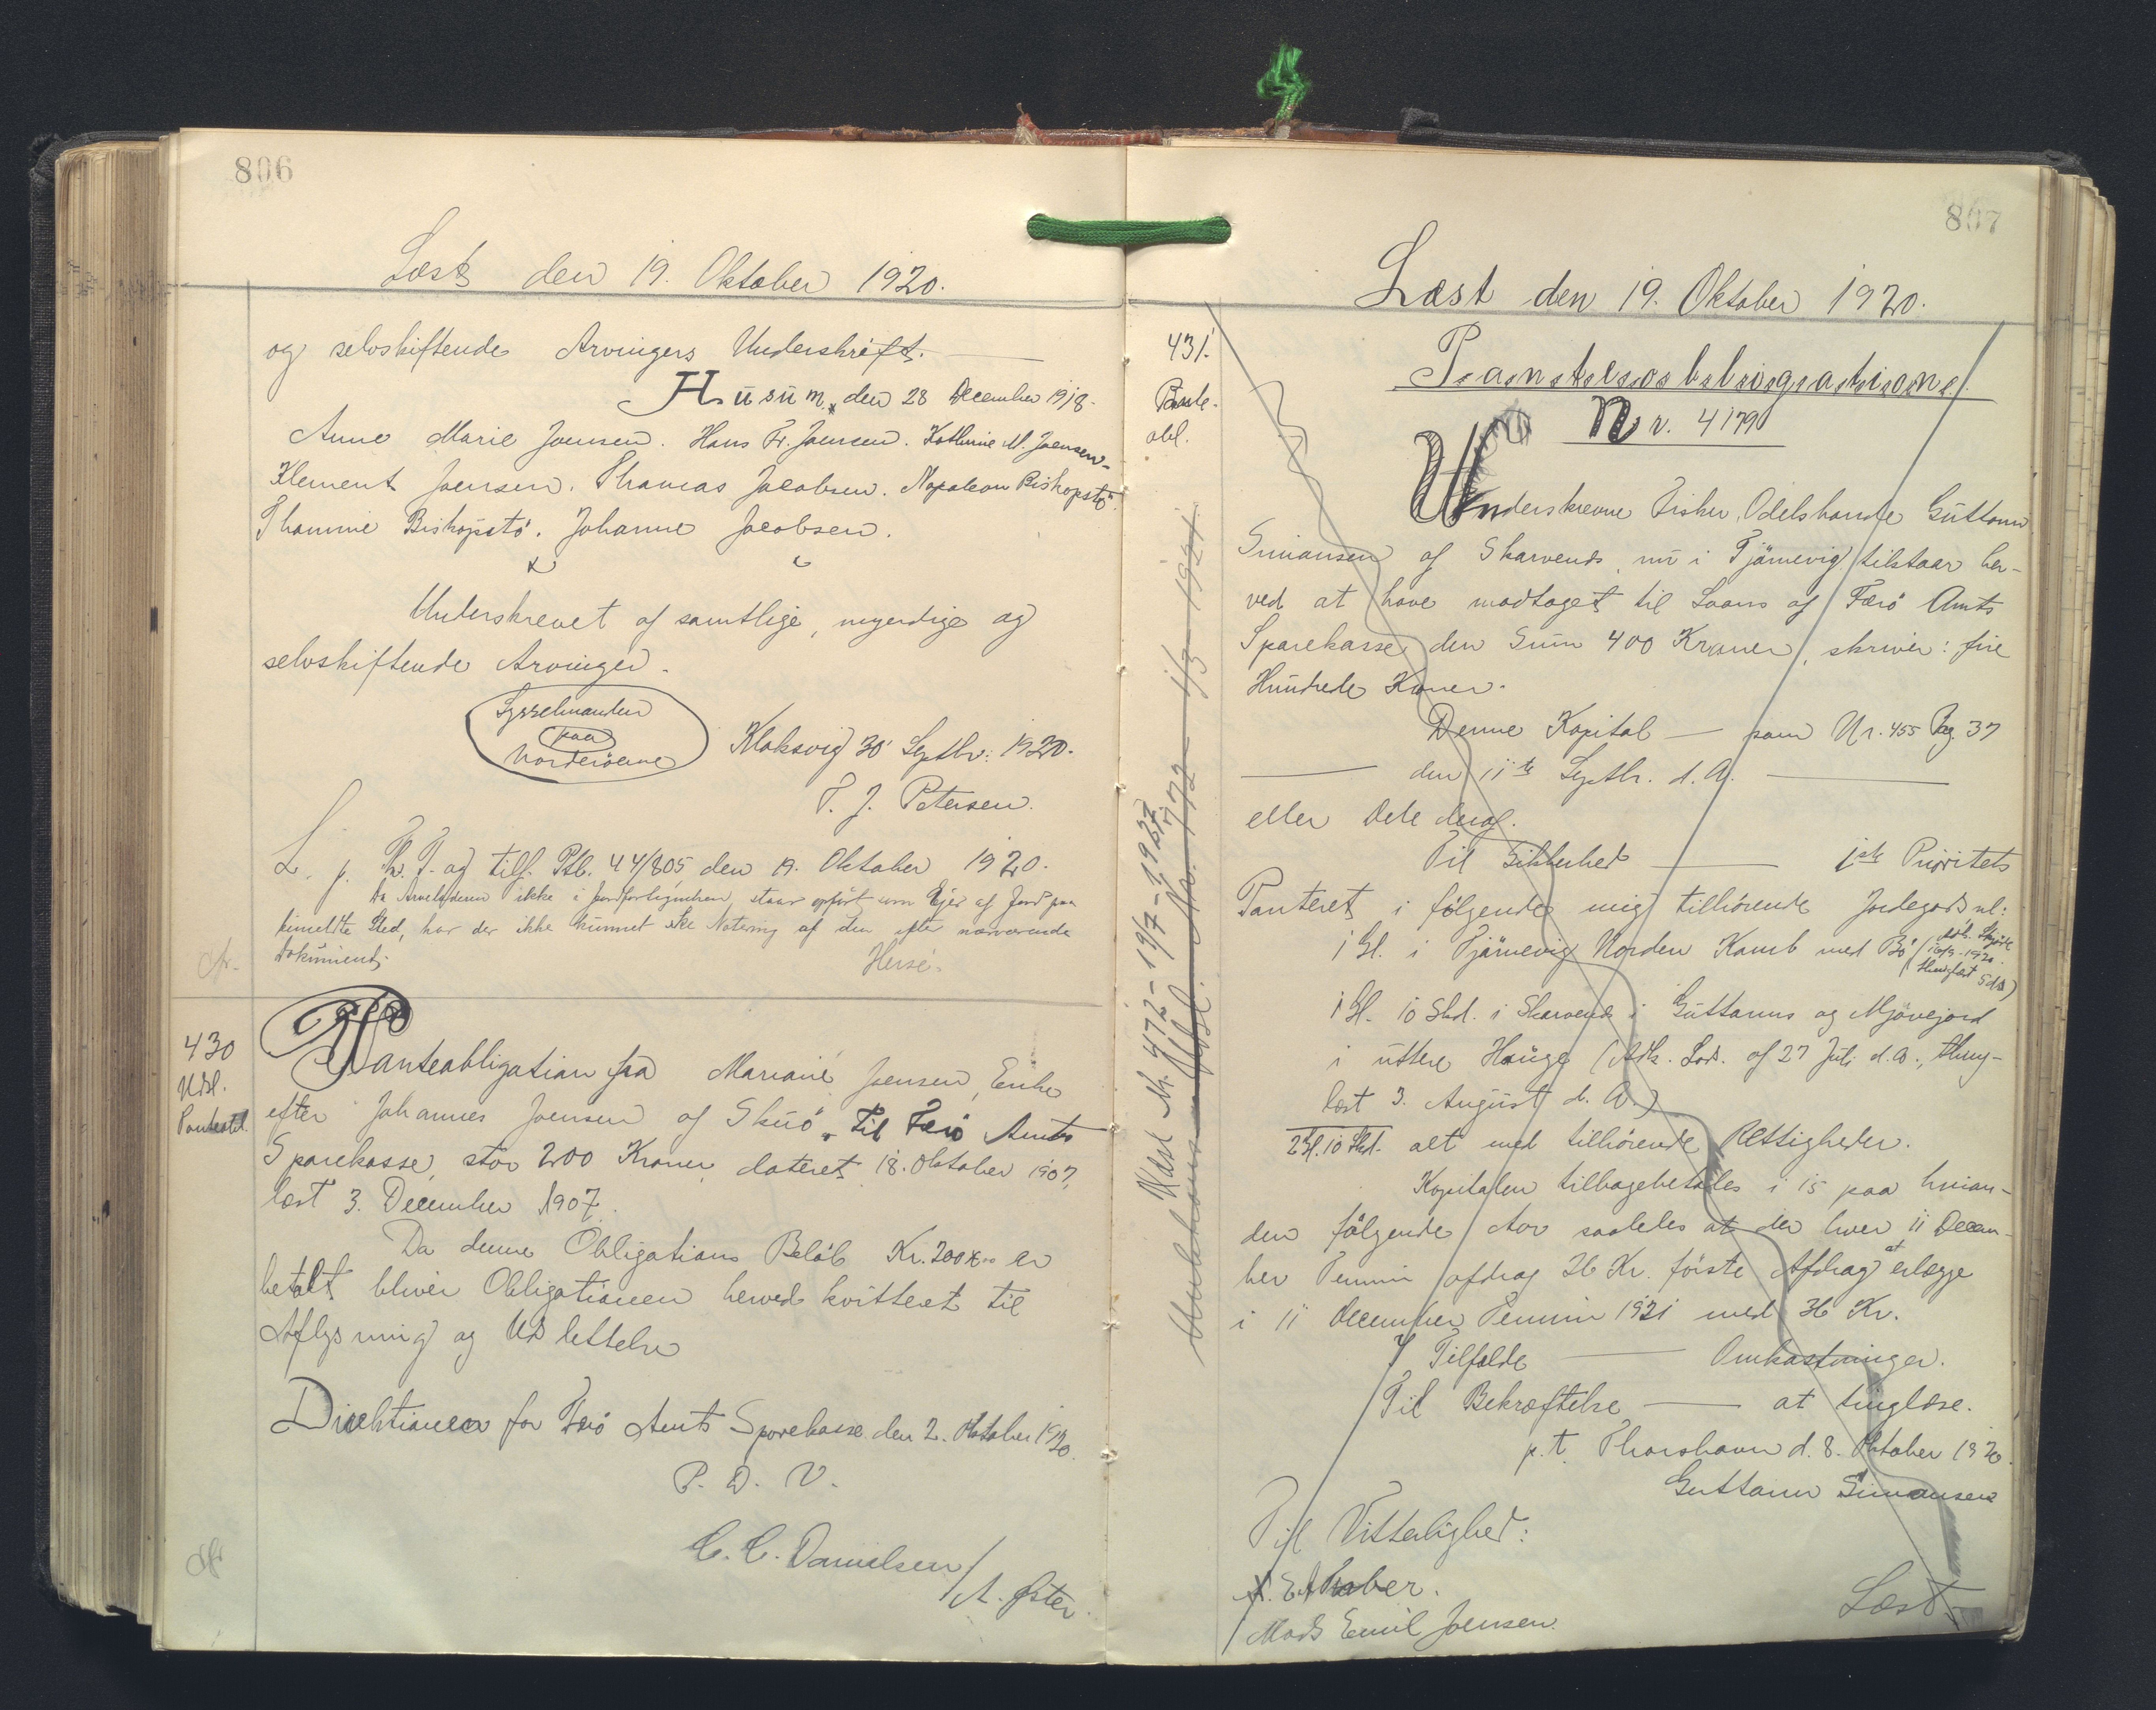 806
Læst den 19. Oktober 1920.
og selvskiftende Arvingers Underskrift.
Husum, den 28 December 1918.
Anne Marie Joensen. Hans Fr. Joensen. Kathrine M. Joensen.
Klement Joensen. Thomas Jacobsen. Napoleon Biskopstö.
Thomine Biskopstö. Johanne Jacobsen.
Underskrevet af samtlige, myndige og
selvskiftende Arvinger.
Sysselmanden
paa
Norderöerne
Klaksvig 30 Septbr: 1920.
P. J. Petersen.
L. p. Th. T. og tilf. Ptb. 44/805 den 19. Oktober 1920.
Da Arveladeren ikke i Jordfortegnelsen staar opført som Ejer af Jord paa
bemeldte Sted, har der ikke kunnet ske Notering af den efter nærværende
Dokument.
430
Udsl.
Panteobl.
Panteobligation fra Mariane Joensen, Enke
efter Johannes Joensen af Skuö, til Færö Amts
Sparekasse, stor 200 Kroner, dateret 18. Oktober 1907,
læst 3. December 1907.
Da denne Obligations Beløb Kr. 200 er
betalt bliver Obligationen herved kvitteret til
Aflysning og Udslettelse
Direktionen for Færö Amts Sparekasse den 2. Oktober 1920.
P. D. V.
C. C. Danielsen
/ A. Øster.
807
Læst den 19. Oktober 1920.
431.
Pante-
obl.
Udsl. Nr. 472 - 19/7 - 1927
Panteobligation
Nr. 4179
Underskrevne Fisker, Odelsbonde Guttorm
Simonsen af Skarvenes, nu i Tjörnevig tilstaar her-
ved at have modtaget til Laans af Færö Amts
Sparekasse den Sum 400 Kroner, skriver: fire
Hundrede Kroner.
Denne Kapital — som Nr. 455 Pag. 37
— den 11te Septbr. d. A. —
eller Dele deraf.
Til Sikkerhed — 1ste Prioritets
Panteret i følgende mig tilhörende Jordegods nl:
1 Gl. i Tjörnevig Norden Kamb med Bö (Adk. Skjöde
Gl. 10 Skd. i Skarvenes i Guttorms og Mjövejord
i uttere Hauge (Adk. Lods. af 27 Juli d. A., thing-
læst 3. August d. A.)
2 Gl. 10 Skd. alt med tilhörende Rettigheder.
Kapitalen tilbagebetales i 15 paa hinan-
den følgende Aar saaledes at der hver 11 Decem-
ber Termin afdrag 26 Kr. første Afdrag at erlægge
i 11 December Termin 1921 med 36 Kr.
I Tilfælde — Omkostninger.
Til Bekræftelse — at tinglæse.
p. t. Thorshavn d. 8. Oktober 1920.
Guttorm Simonsen
Til Vitterlighed:
Mads Emil Joensen.
Læst